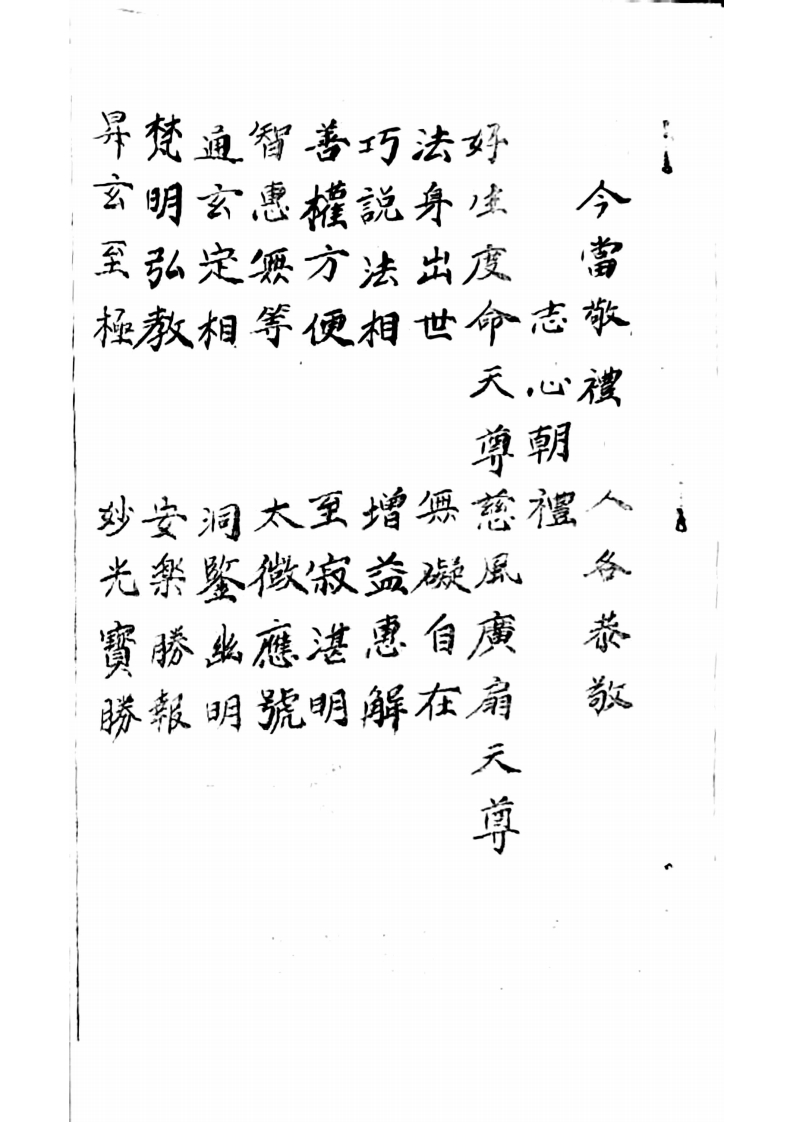 今當敬禮　人各恭敬
志心朝禮
好生度命天尊慈風廣扇天尊
法身出世　無礙自在
巧說法相　增益惠解
善權方便　至寂湛明
智惠無等　太微應號
通玄定相　洞鑒幽明
梵明弘教　安樂勝報
昇玄至極　妙光寶勝